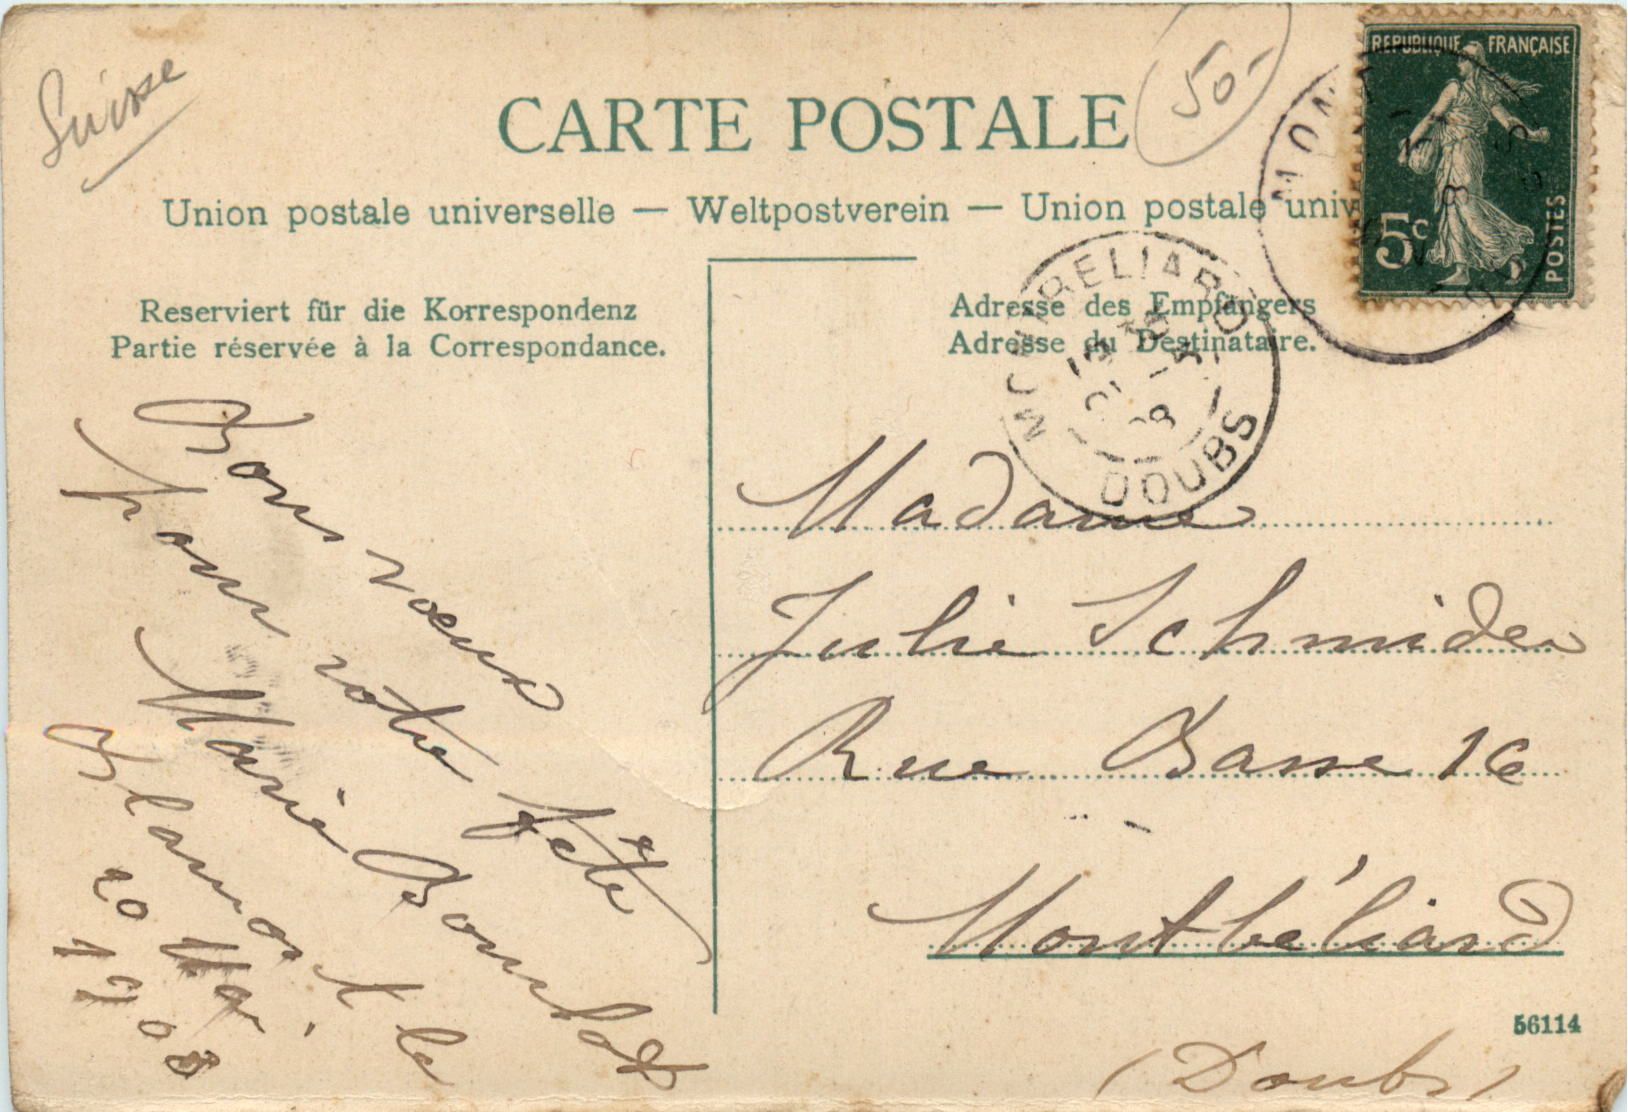 Suisse
50-
CARTE POSTALE
Union postale universelle — Weltpostverein — Union postale univ
REPUBLIQUE FRANÇAISE
5c
POSTES
Reserviert für die Korrespondenz
Partie réservée à la Correspondance.
Adresse des Empfängers
Adresse du Destinataire.
MONTBELIARD
DOUBS
Bons vœux
pour votre fête
Marie
Blamont le
20 Mai
1908
Madame
Julie Schmider
Rue Basse 16
Montbéliard
56114
(Doubs)